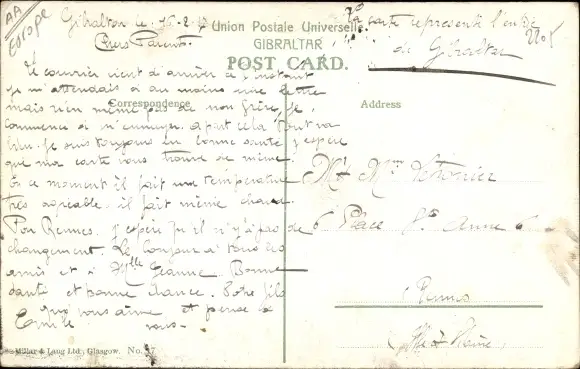 AA
Europe
Gibraltar le 16-2-
Chers Parents.
Le courrier vient d'arriver à l'instant
je m'attendais à au moins une lettre
mais rien même pas de mon frère, je
commence à m'ennuyer. à part cela tout va
bien. Je suis toujours en bonne santé j'espère
que ma carte vous trouve de même.
En ce moment il fait une température
très agréable. il fait même chaud.
Pour Rennes. J'espère qu'il n'y a pas de
changement. Le bonjour à tous les
amis et à Mlle Jeanne. Bonne
santé et bonne chance. Votre fils
qui vous aime et pense à
Emile vous.-
Union Postale Universelle.
GIBRALTAR
POST CARD.
Correspondence
Address
carte représente l'entrée
de Gibraltar
Mr Mme
6 Place Ste Anne 6
Rennes
Ille et Vilaine
Millar & Lang Ltd., Glasgow. No.